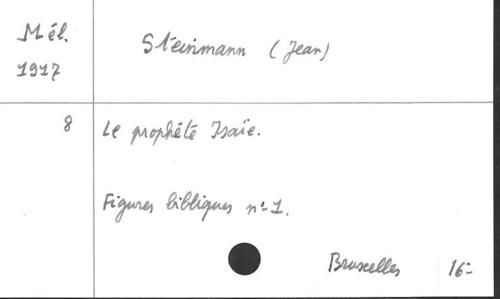 Mél.
1917
Steinmann (Jean)
8
Le prophète Isaïe.
Figures bibliques n° 1.
Bruxelles 16=